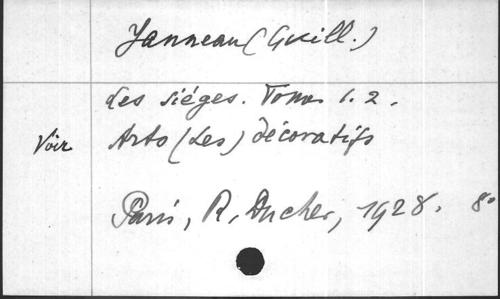 Janneau (Guill.)
Les sièges. Tome 1. 2.
Voir Arts (Les) décoratifs
Paris, R. Ducher, 1928. 8°